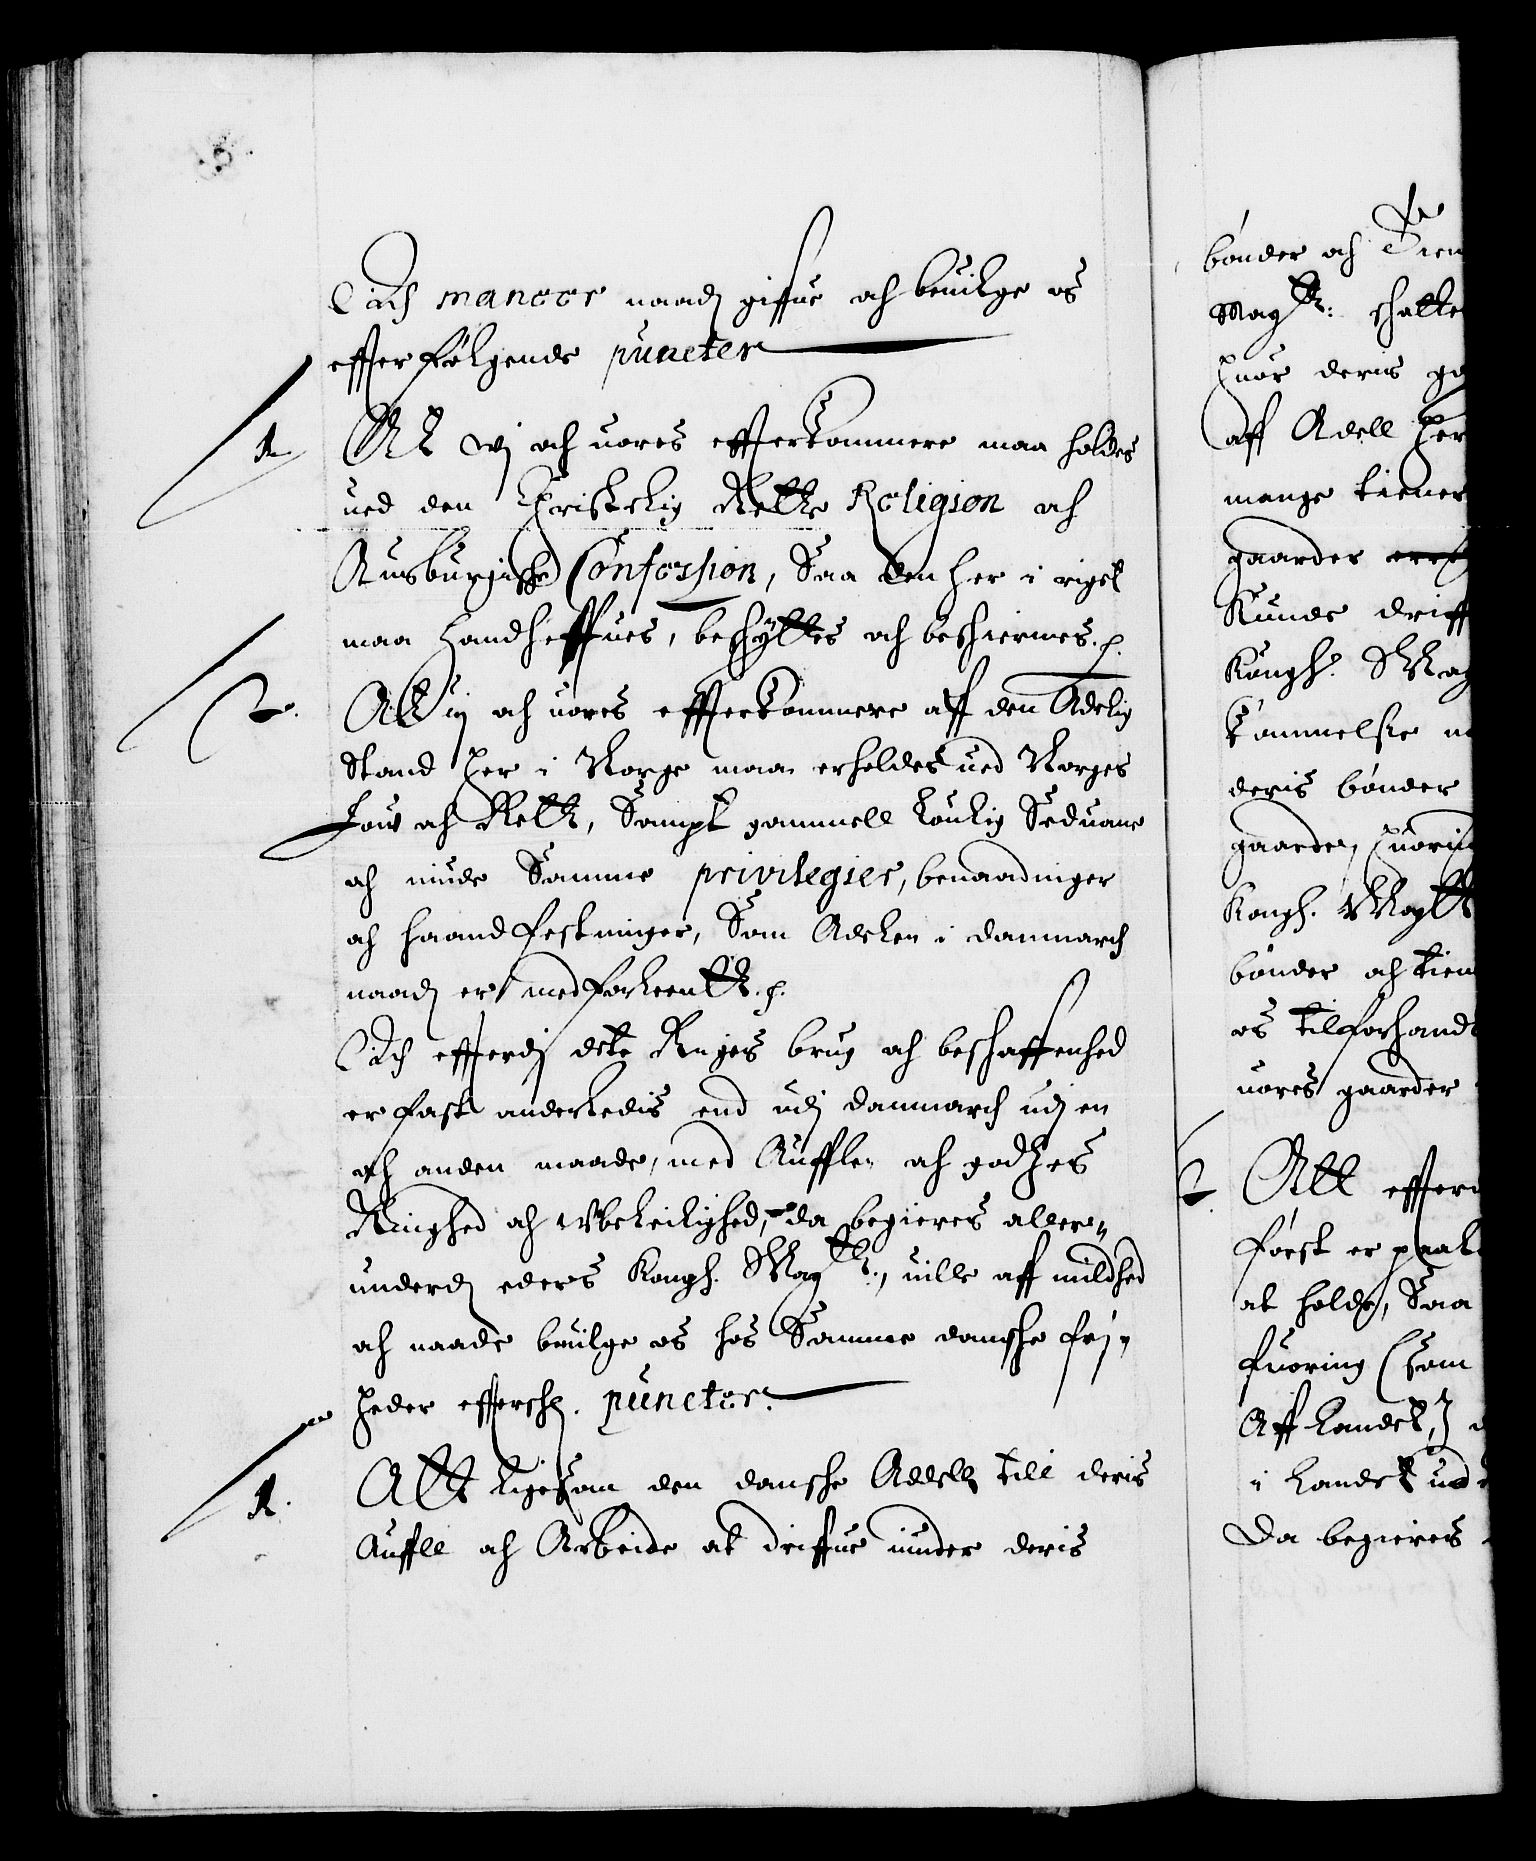 Och maneer naadj giffue och beuilge os
effterfølgende puncter
1. At wj och uores effterkommere maa holdes
ued den Christelig Rette Religion och
Ausburgische Confession, Saa den her i riget
maa handheffues, beschyttes och beschiermes.
2. Att uj och uores effterkommere aff den Adelig
Stand her i Norge maa erholdes ued Norges
Low och Rett, Sampt gammell loulig Seduane
och niude Samme privilegier, benaadinger
och haandfestninger, Som Adelen i danmarch
naadj er medforleentt.
Och effterdj dete Riges brug och beschaffenhed
er fast anderledis end udj danmarch udj en
och anden maade, med Auffler och godzes
Ringhed och Wbeleilighed, da begieres aller-
underdj eders Kongh. Maytt., uille aff mildhed
och naade beuilge os hos Samme danske frj-
heder effterschr. puncter.
1. Att ligesom den dansche Adell till deris
Auffle och Arbeide at driffue niuder deris
bønder och
Magtt: schatte
huor deris
aff Adell her
mange tiener
gaarder
Kunde driff
Kongh. May
kommelse
deris bønder
gaarde, huor
Kongh. Maytt
bønder och tien
os tilforhand
uores gaarder
2. Att effter
først er paa
at holde, Saa
fuoring (som
Aff Landet,)
i Landet ud
Da begieres